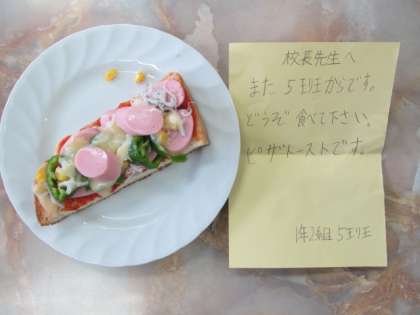 校長先生へ
また5班からです。
どうぞ食べて下さい。
ピザトーストです。
1年2組 5班